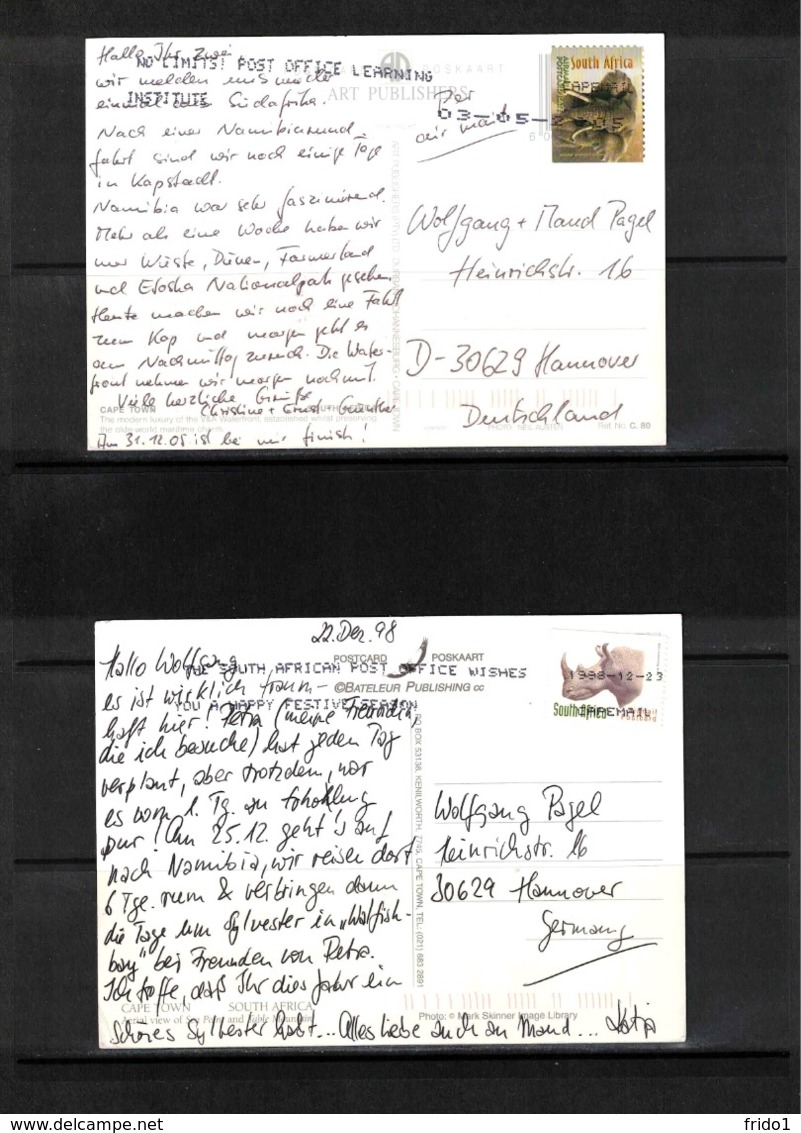 Hallo Ihr zwei
NO LIMITS! POST OFFICE LEARNING
INSTITUTE
POSKAART
ART PUBLISHERS
wir melden uns mal
einmal aus Südafrika.
Nach einer Namibiarund-
fahrt sind wir noch einige Tage
in Kapstadt.
Namibia war sehr faszinierend.
Mehr als eine Woche haben wir
nur Wüste, Dünen, Farmerland
und Etosha Nationalpark gesehen.
Heute machen wir noch eine Fahrt
zum Kap und morgen geht es
am Nachmittag zurück. Die Water-
front nehmen wir morgen noch mit.
Viele herzliche Grüße
Christine + Ernst-Günther
Am 31.12.05 ist bei mir finish!
CAPE TOWN
The modern luxury of the V&A Waterfront, established whilst preserving
the olde-world maritime charm.
Per
air mail
03-05-
South Africa
CAPEMAIL
Wolfgang + Maud Pagel
Heinrichstr. 16
D-30629 Hannover
Deutschland
PHOTO: NEIL AUSTEN
Ref. No. C. 80
22. Dez. 98
Hallo Wolfgang
POSTCARD POSKAART
THE SOUTH AFRICAN POST OFFICE WISHES
YOU A HAPPY FESTIVE SEASON
©BATELEUR PUBLISHING CC
es ist wirklich traum-
haft hier! Petra (meine Freundin,
die ich besuche) hat jeden Tag
verplant, aber trotzdem, war
es vom 1. Tg. an Erholung
pur! Am 25.12. geht's auf
nach Namibia, wir reisen dort
6 Tge. rum & verbringen dann
die Tage um Sylvester in "Walfish-
bay" bei Freunden von Petra.
Ich hoffe, daß Ihr dies Jahr ein
schönes Sylvester habt... Alles Liebe auch an Maud... Katja
CAPE TOWN SOUTH AFRICA
Aerial view of Sea Point and Table Mountain
PO BOX 53138, KENILWORTH, 7745, CAPE TOWN, TEL: (021) 683 2891
1998-12-23
CAPEMAIL
South Africa
Postcard
Wolfgang Pagel
Heinrichstr. 16
30629 Hannover
Germany
Photo: © Mark Skinner Image Library
frido1